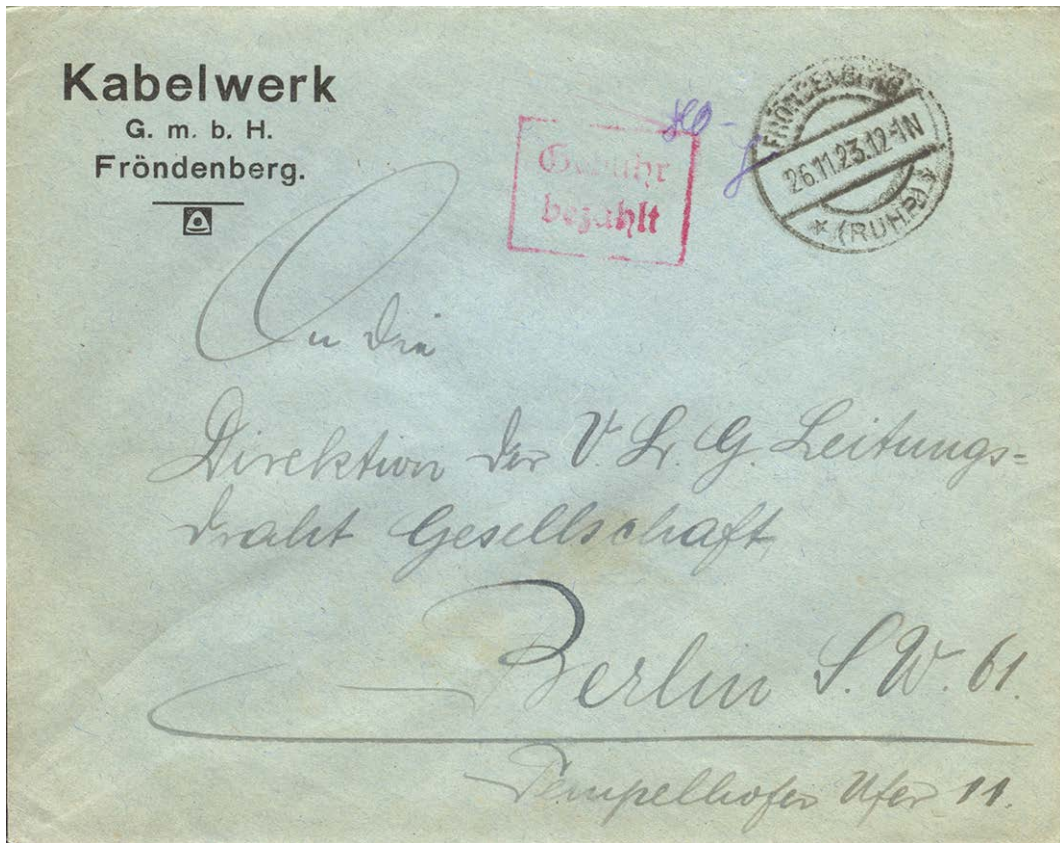 Kabelwerk
G. m. b. H.
Fröndenberg.
Gebühr
bezahlt
FRÖNDENBERG
26.11.23.12-1N
* (RUHR)
An die
Direktion der V. L. G. Leitungs=
draht Gesellschaft,
Berlin S.W. 61.
Tempelhofer Ufer 11.